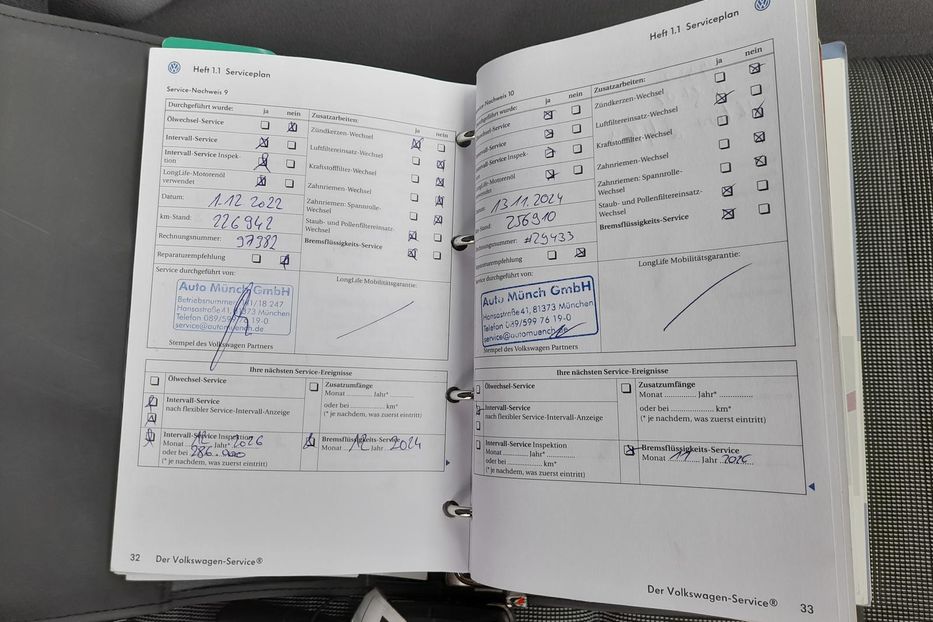 Heft 1.1 Serviceplan
Service-Nachweis 9
Durchgeführt wurde: ja nein
Ölwechsel-Service
Intervall-Service
Intervall-Service Inspek-
tion
LongLife-Motorenöl
verwendet
Datum: 1.12.2022
km-Stand: 226942
Rechnungsnummer: 97382
Reparaturempfehlung
Zusatzarbeiten: ja nein
Zündkerzen-Wechsel
Luftfiltereinsatz-Wechsel
Kraftstofffilter-Wechsel
Zahnriemen-Wechsel
Zahnriemen: Spannrolle-
Wechsel
Staub- und Pollenfiltereinsatz-
Wechsel
Bremsflüssigkeits-Service
Service durchgeführt von:
Auto Münch GmbH
Hansastraße 41, 81373 München
service@automuench.de
Stempel des Volkswagen Partners
LongLife Mobilitätsgarantie:
Ihre nächsten Service-Ereignisse
Ölwechsel-Service
Intervall-Service
nach flexibler Service-Intervall-Anzeige
Intervall-Service Inspektion
Monat 12 Jahr 2026
oder bei 286.000
(* je nachdem, was zuerst eintritt)
Zusatzumfänge
Monat ............ Jahr* ............
oder bei ............ km*
(* je nachdem, was zuerst eintritt)
Bremsflüssigkeits-Service
Monat 12 Jahr 2024
32 Der Volkswagen-Service®
Heft 1.1 Serviceplan
Service-Nachweis 10
ja nein
Intervall-Service Inspek-
LongLife-Motorenöl
13.11.2024
km-Stand: 256910
Rechnungsnummer: #29433
Reparaturempfehlung
Zusatzarbeiten: ja nein
Zündkerzen-Wechsel
Luftfiltereinsatz-Wechsel
Kraftstofffilter-Wechsel
Zahnriemen-Wechsel
Zahnriemen: Spannrolle-
Wechsel
Staub- und Pollenfiltereinsatz-
Wechsel
Bremsflüssigkeits-Service
Service durchgeführt von:
Auto Münch GmbH
Hansastraße 41, 81373 München
Telefon 089/599 76 19-0
service@automuench.de
Stempel des Volkswagen Partners
LongLife Mobilitätsgarantie:
Ihre nächsten Service-Ereignisse
Ölwechsel-Service
Intervall-Service
nach flexibler Service-Intervall-Anzeige
Intervall-Service Inspektion
Monat ............ Jahr* ............
oder bei ............ km*
(* je nachdem, was zuerst eintritt)
Zusatzumfänge
Monat ............ Jahr* ............
oder bei ............ km*
(* je nachdem, was zuerst eintritt)
Bremsflüssigkeits-Service
Monat 11 Jahr 2026
Der Volkswagen-Service® 33